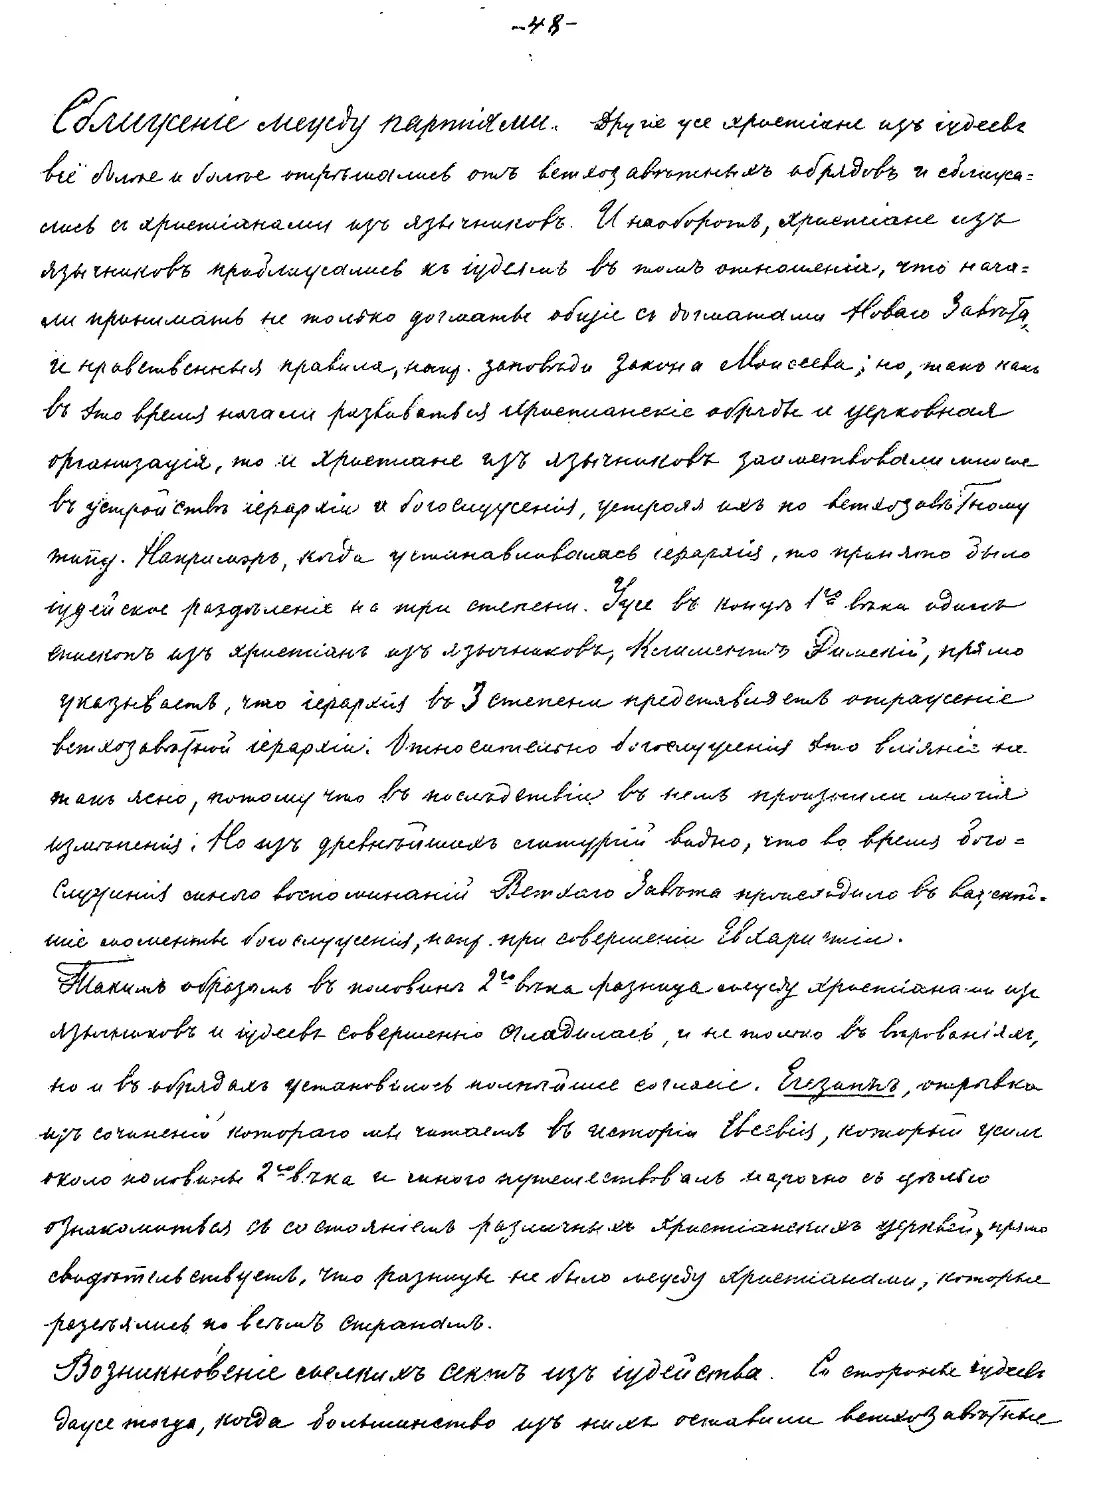 -48-
Сближеніе между партіями. Другіе же христіане изъ іудеевъ
всё болѣе и болѣе отрѣшались отъ ветхозавѣтныхъ обрядовъ и сближа=
лись съ христіанами изъ язычниковъ. И наоборотъ, христіане изъ
язычниковъ приближались къ іудеямъ въ томъ отношеніи, что нача=
ли принимать не только догматы общіе съ догматами Новаго Завѣта,
и нравственныя правила, напр. заповѣди Закона Моисеева; но, такъ какъ
въ это время начали развиваться христианскіе обряды и церковная
организація, то и христиане изъ язычниковъ заимствовали многое
въ устройствѣ іерархіи и богослуженія, устрояя ихъ по ветхозавѣтному
типу. Напримѣръ, когда устанавливалась іерархія, то принято было
іудейское раздѣленіе на три степени. Уже въ концѣ 1го вѣка одинъ
епископъ изъ христіанъ изъ язычниковъ, Климентъ Римскій, прямо
указываетъ, что іерархія въ 3 степени представляетъ отраженіе
ветхозавѣтной іерархіи. Относительно богослуженія это вліяніе не
такъ ясно, потому что въ послѣдствіи въ немъ произошли многія
измѣненія. Но изъ древнѣйшихъ литургій видно, что во время бого=
служенія много воспоминаній Ветхаго Завѣта происходило въ важнѣй-
шіе моменты богослуженія, напр. при совершеніи Евхаристіи.
Такимъ образомъ въ половинѣ 2го вѣка разница между христіанами изъ
язычниковъ и іудеевъ совершенно сгладилась, и не только въ вѣрованіяхъ,
но и въ обрядахъ установилось полнѣйшее согласіе. Егезиппъ, отрывки
изъ сочиненій котораго мы читаемъ въ исторіи Евсевія, который жилъ
около половины 2го вѣка и много путешествовалъ нарочно съ цѣлью
ознакомиться съ состояніемъ различныхъ христіанскихъ церквей, прямо
свидѣтельствуетъ, что разницы не было между христіанами, которые
разсѣялись по всѣмъ странамъ.
Возникновеніе мелкихъ сектъ изъ іудейства. Со стороны іудеевъ
даже тогда, когда большинство изъ нихъ оставили ветхозавѣтные